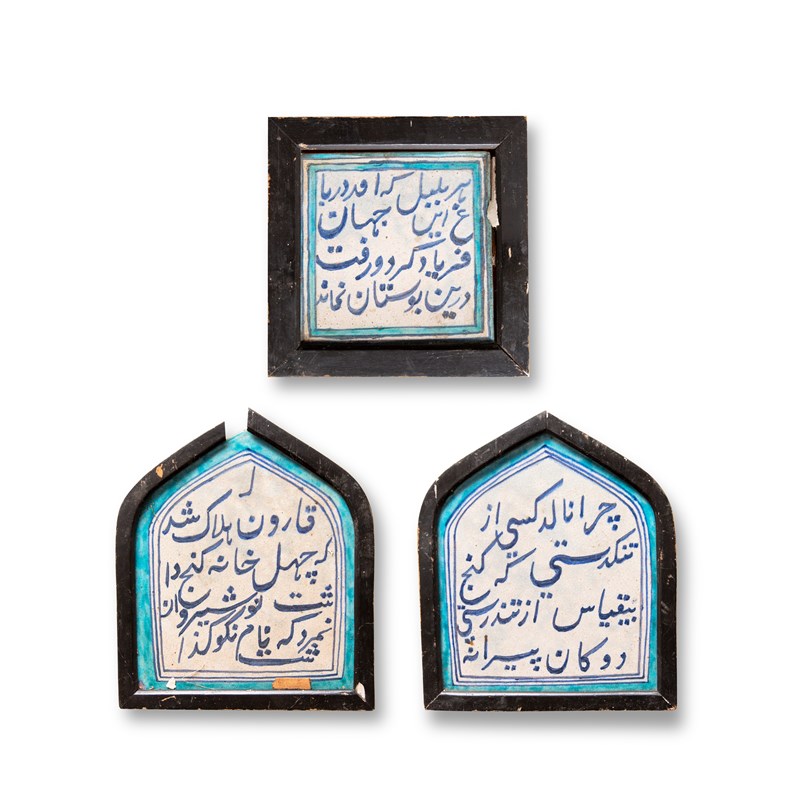 هر بلبل که امد دربا
غ این جهان
فریاد کرد و رفت
درین بوستان نماند
قارون هلاک شد
که چهل خانه گنج دا
شت نورشیروان
نمرد که نام نکو گذا
شت
چرا نالد کسی از
تنکدستي که گنج
بیقیاس از تندرستي
دوکان پیرانه